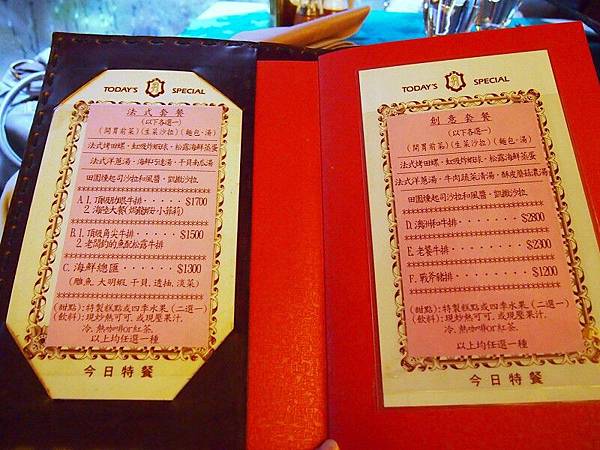 TODAY'S SPECIAL
法式套餐
(以下各選一)
(開胃前菜)(生菜沙拉)(麵包、湯)
法式烤田螺、
松露海鮮蒸蛋
法式洋蔥湯、海鮮巧達湯、干貝南瓜湯
田園燻起司沙拉和風醬、凱撒沙拉
A 1. 頂級肋眼牛排 $1700
2. 海陸大餐
B 1. 頂級角尖牛排 $1500
2. 老闆釣的魚配松露牛排
C. 海鮮總匯 $1300
(雕魚、大明蝦、干貝、透抽、淡菜)
(甜點):特製糕點或四季水果(二選一)
(飲料):現炒熱可可、或現壓果汁、
冷、熱咖啡or紅茶、
以上均任選一種
今日特餐
TODAY'S SPECIAL
創意套餐
(以下各選一)
(開胃前菜)(生菜沙拉)(麵包、湯)
法式烤田螺、
松露海鮮蒸蛋
法式洋蔥湯、牛肉蔬菜清湯、酥皮蘑菇濃湯
田園燻起司沙拉和風醬、凱撒沙拉
D. 澳洲和牛排 $2800
E. 老饕牛排 $2300
F. 戰斧豬排 $1200
(甜點):特製糕點或四季水果(二選一)
(飲料):現炒熱可可、或現壓果汁、
冷、熱咖啡or紅茶、
以上均任選一種
今日特餐